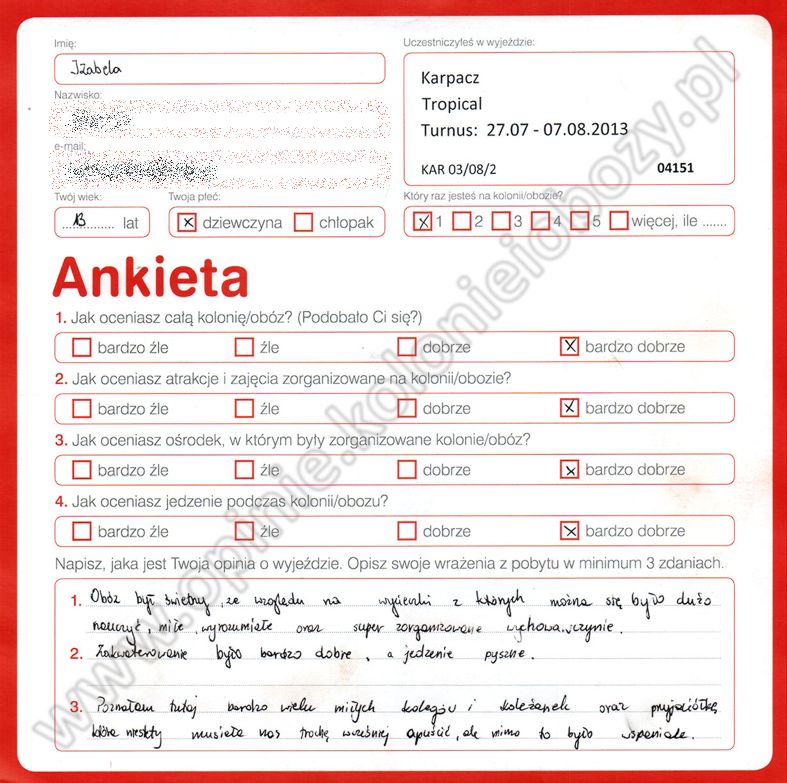 Imię:
Izabela
Nazwisko:
e-mail:
Twój wiek:
13 lat
Twoja płeć:
x dziewczyna chłopak
Uczestniczyłeś w wyjeździe:
Karpacz
Tropical
Turnus: 27.07 - 07.08.2013
KAR 03/08/2 04151
Który raz jesteś na kolonii/obozie?
x 1 2 3 4 5 więcej, ile .......
Ankieta
1. Jak oceniasz całą kolonię/obóz? (Podobało Ci się?)
bardzo źle źle dobrze x bardzo dobrze
2. Jak oceniasz atrakcje i zajęcia zorganizowane na kolonii/obozie?
bardzo źle źle dobrze x bardzo dobrze
3. Jak oceniasz ośrodek, w którym były zorganizowane kolonie/obóz?
bardzo źle źle dobrze x bardzo dobrze
4. Jak oceniasz jedzenie podczas kolonii/obozu?
bardzo źle źle dobrze x bardzo dobrze
Napisz, jaka jest Twoja opinia o wyjeździe. Opisz swoje wrażenia z pobytu w minimum 3 zdaniach.
1. Obóz był świetny, ze względu na wycieczki z których można się było dużo
nauczyć, miłe, wyrozumiałe oraz super zorganizowane wychowawczynie.
2. Zakwaterowanie było bardzo dobre, a jedzenie pyszne.
3. Poznałam tutaj bardzo wielu miłych kolegów i koleżanek oraz przyjaciółkę
która niestety musiała nas trochę wcześniej opuścić, ale mimo to było wspaniale.
www.opinie.kolonieiobozy.pl